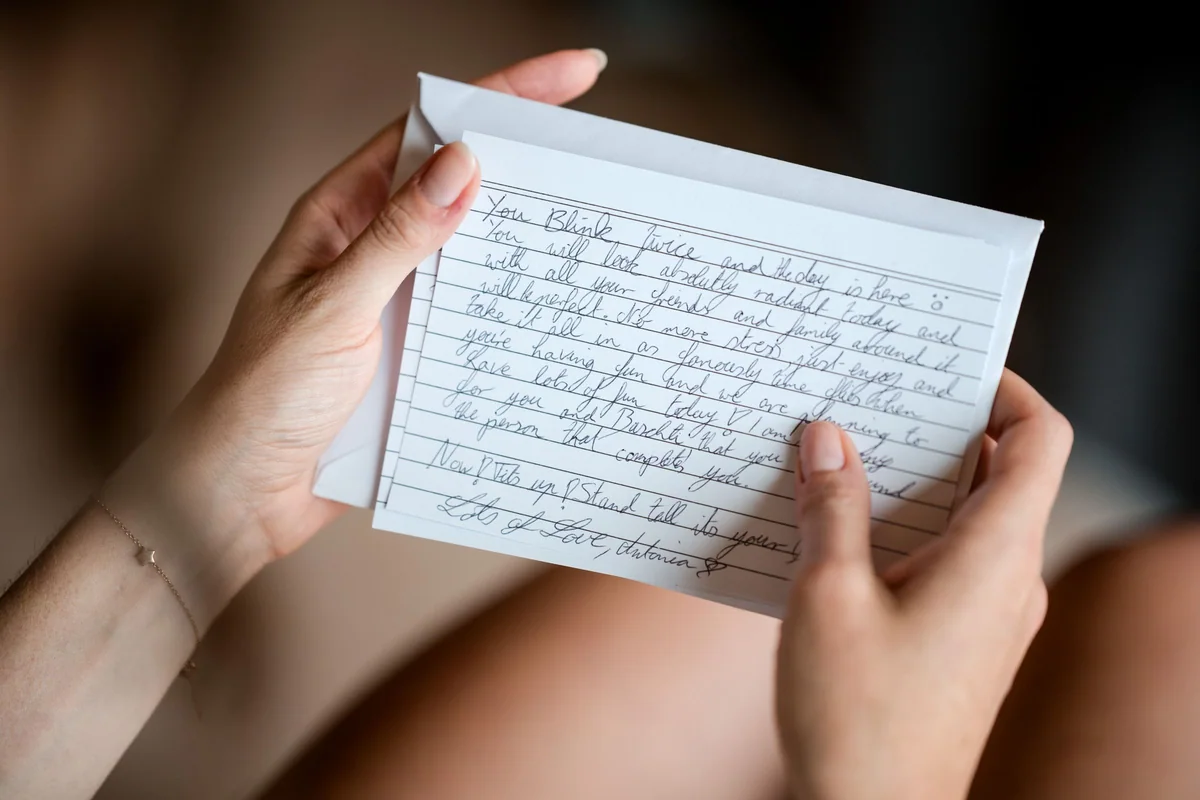 You Blink twice and the day is here ☺
You will look absolutly radiant today and
with all your friends and family around it
will be perfect. No more stress just enjoy and
take it all in as famously time flies when
you're having fun and we are planning to
have lots of fun today! I am
for you and that you
the person that completes you.
Now! Tits up! Stand tall its your
Lots of Love, Antonia